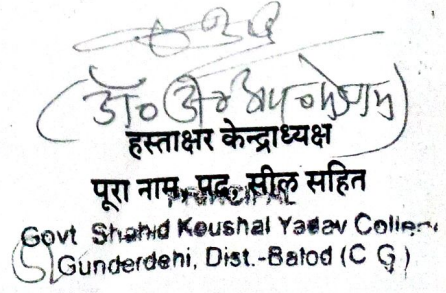 (डॉ० डी० आर० मेश्राम)
हस्ताक्षर केन्द्राध्यक्ष
पूरा नाम, पद, सील सहित
PRINCIPAL
Govt Shahid Koushal Yadav College
Gunderdehi, Dist.-Balod (C G)